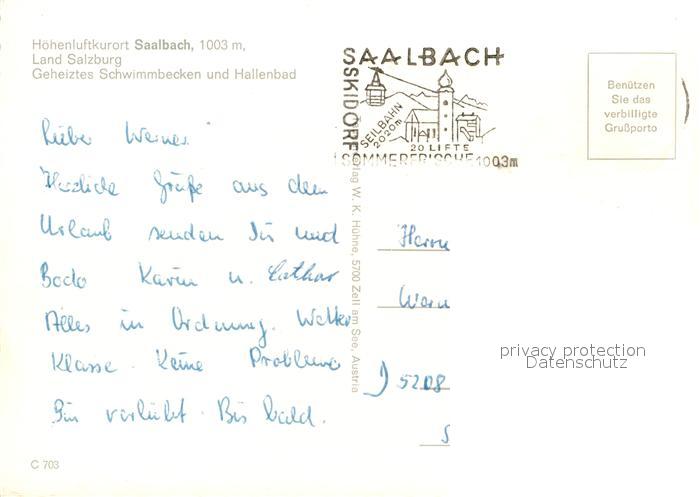 Höhenluftkurort Saalbach, 1003 m,
Land Salzburg
Geheiztes Schwimmbecken und Hallenbad
SAALBACH
SKIDORF
SEILBAHN
2020m
20 LIFTE
SOMMERFRISCHE 1003m
Benützen
Sie das
verbilligte
Grußporto
Lieber Werner
Herzliche Grüße aus dem
Urlaub senden Dir und
Bodo Karin u. Lothar
Alles in Ordnung. Wetter
Klasse. Keine Probleme
Bin verliebt. Bis bald.
Verlag W. K. Hühne, 5700 Zell am See, Austria
Herrn
Wern
D 5208
S
privacy protection
Datenschutz
C 703